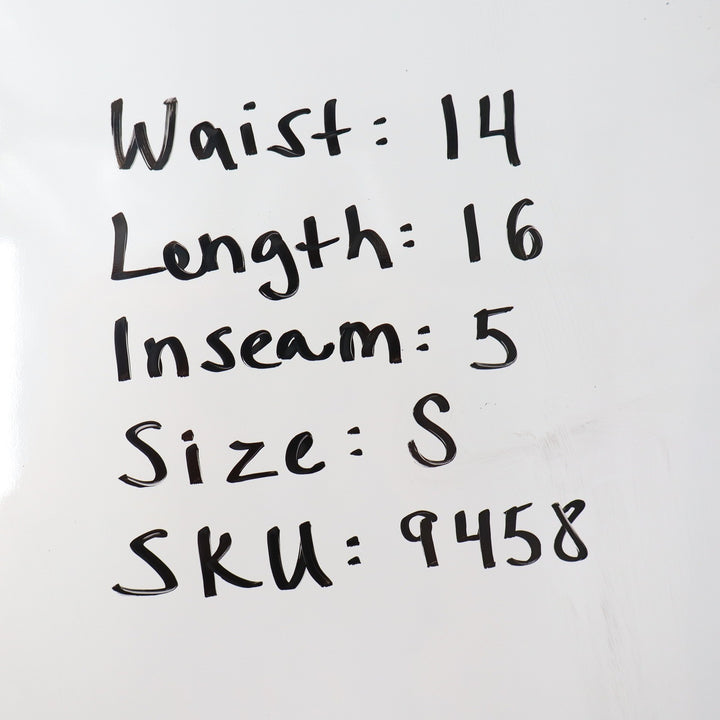 Waist: 14
Length: 16
Inseam: 5
Size: S
SKU: 9458